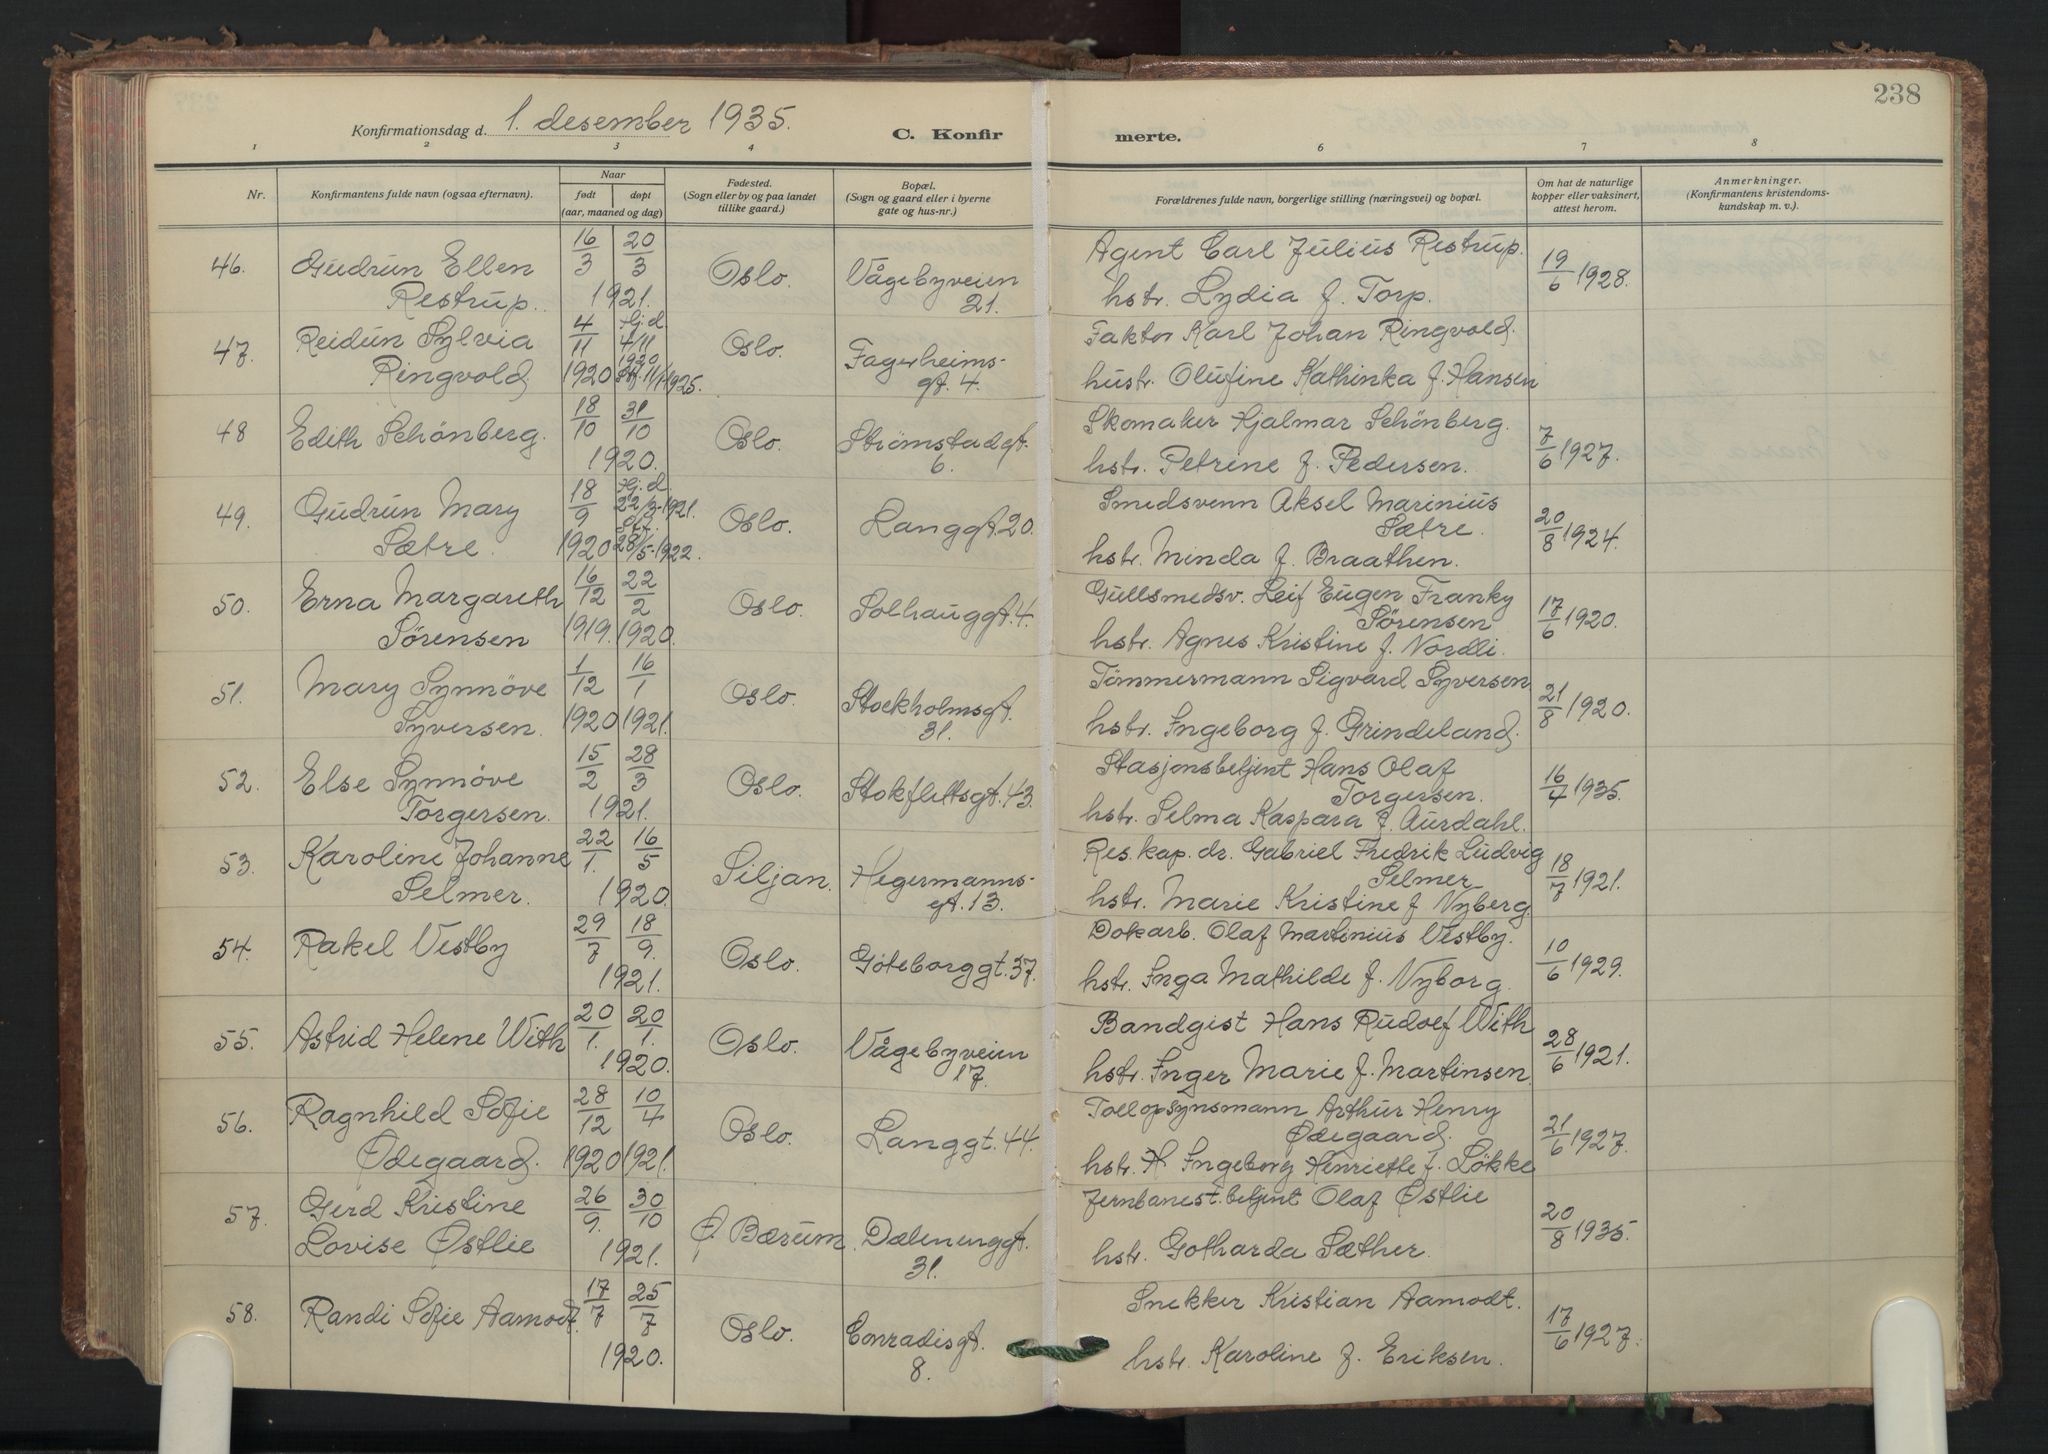 238
Konfirmationsdag d. 1. desember 1935.
C. Konfirmerte.
1 2 3 4 6 7 8
Nr.
Konfirmantens fulde navn (ogsaa efternavn).
Naar
født
døpt
(aar, maaned og dag)
Fødested.
(Sogn eller by og paa landet
tillike gaard.)
Bopæl.
(Sogn og gaard eller i byerne
gate og hus-nr.)
Forældrenes fulde navn, borgerlige stilling (næringsvei) og bopæl.
Om hat de naturlige
kopper eller vaksinert,
attest herom.
Anmerkninger.
(Konfirmantens kristendoms-
kundskap m. v.).
46. Gudrun Ellen Restrup. 16/3 20/3 1921. Oslo. Vågebyveien 21. Agent Carl Julius Restrup. 19/6 1928.
hstr. Lydia f. Torp.
47. Reidun Sylvia Ringvold. 4/11 1920 Hj.d. 4/11 1920 11/1 1925. Oslo. Fagerheims- gt. 4. Faktor Karl Johan Ringvold.
hustr. Olufine Kathinka f. Hansen
48 Edith Schönberg. 18/10 31/10 1920. Oslo. Strømstadgt. 6. Skomaker Hjalmar Schönberg. 7/6 1927.
hstr. Petrine f. Pedersen.
49. Gudrun Mary Sætre. 18/9 1920 Hj.d. 22/3-1921. stf. 28/5-1922. Oslo. Langgt. 20. Smedsvenn Aksel Marinius Sætre. 20/8 1924.
hstr. Minda f. Braathen.
50. Erna Margareth Sörensen 16/12 1919. 22/2 1920. Oslo. Solhauggt. 4. Gullsmedsv. Leif Eugen Franky Sörensen 17/6 1920.
hstr. Agnes Kristine f. Nordli.
51. Mary Synnöve Syversen. 1/12 1920 16/1 1921. Oslo. Stockholmsgt. 31. Tömmermann Sigvard Syversen. 21/8 1920.
hstr. Ingeborg f. Grindeland.
52. Else Synnöve Torgersen. 15/2 28/3 1921. Oslo. Stokflettsgt. 43. Stasjonsbetjent Hans Olaf Torgersen. 16/4 1935.
hstr. Selma Kaspara f. Aurdahl.
53. Karoline Johanne Selmer. 22/1. 16/5 1920. Siljan. Hegermanns- gt. 13. Res. kap. dr. Gabriel Fredrik Ludvig Selmer 18/7 1921.
hstr. Marie Kristine f. Nyberg.
54. Rakel Vestby 29/7 18/9. 1921. Oslo. Göteborggt. 37. Dokarb. Olaf Martinius Vestby. 10/6 1929.
hstr. Inga Mathilde f. Nyborg.
55. Astrid Helene With 20/1. 20/1. 1920. Oslo. Vågebyveien 17. Bandgist Hans Rudolf With 28/6 1921.
hstr. Inger Marie f. Martinsen.
56. Ragnhild Sofie Ødegaard. 28/12 1920 10/4 1921. Oslo. Langgt. 44. Tollopsynsmann Arthur Henry Ødegaard. 21/6 1927.
hstr. H Ingeborg Henriette f. Lökke
57. Gerd Kristine Lovise Østlie 26/9. 30/10 1921. Ø. Bærum. Dælenenggt. 31. Jernbanest. betjent Olaf Østlie 20/8 1935.
hstr. Gotharda Sæther.
58. Randi Sofie Aamodt. 17/7 25/7 1920. Oslo. Conradisgt. 8. Snekker Kristian Aamodt. 17/6 1927.
hstr. Karoline f. Eriksen.